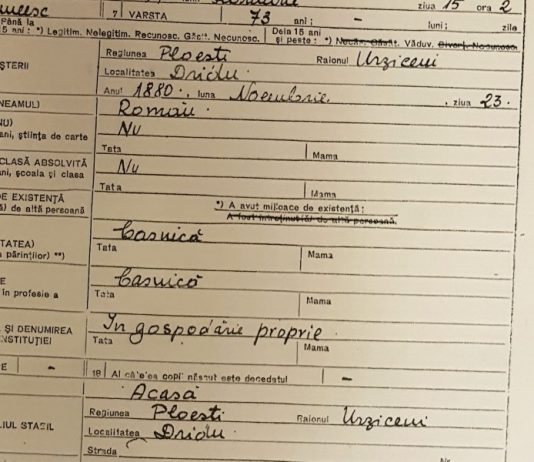 ziua 15 ora 2
7 VARSTA 73 ani; – luni; zile
Până la
15 ani: *) Legitim. Nelegitim. Recunosc. Găsit. Necunosc.
Dela 15 ani
și peste: *) Văduv.
Regiunea Ploesti Raionul Urziceni
Localitatea Dridu.
Anul 1880. luna Noembrie. , ziua 23.
NEAMUL) Român.
NU) Nu
ani, știința de carte
Tata Mama
CLASĂ ABSOLVITĂ Nu
ani, școala și clasa
Tata Mama
DE EXISTENȚĂ *) A avut mijloace de existență:
de altă persoană A fost întreținut(ă) de altă persoană.
Casnică
părinților) **) Tata Mama
Casnică
în profesie a Tata Mama
ȘI DENUMIREA In gospodărie proprie
INSTITUȚIEI Tata Mama
– 18 Al câtelea copil născut este decedatul –
Acasă
Regiunea Ploesti Raionul Urziceni
Localitatea Dridu
Strada Nr.